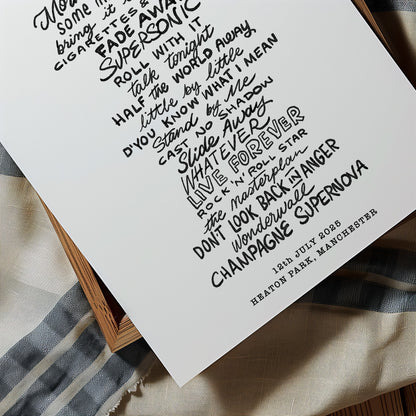 SOME
bring it
CIGARETTES &
FADE AWAY
SUPERSONIC
ROLL WITH IT
talk tonight
HALF THE WORLD AWAY
little by little
D'YOU KNOW WHAT I MEAN
Stand by Me
CAST NO SHADOW
Slide Away
WHATEVER
LIVE FOREVER
ROCK 'N' ROLL STAR
the masterplan
DON'T LOOK BACK IN ANGER
Wonderwall
CHAMPAGNE SUPERNOVA
12th JULY 2025
HEATON PARK, MANCHESTER